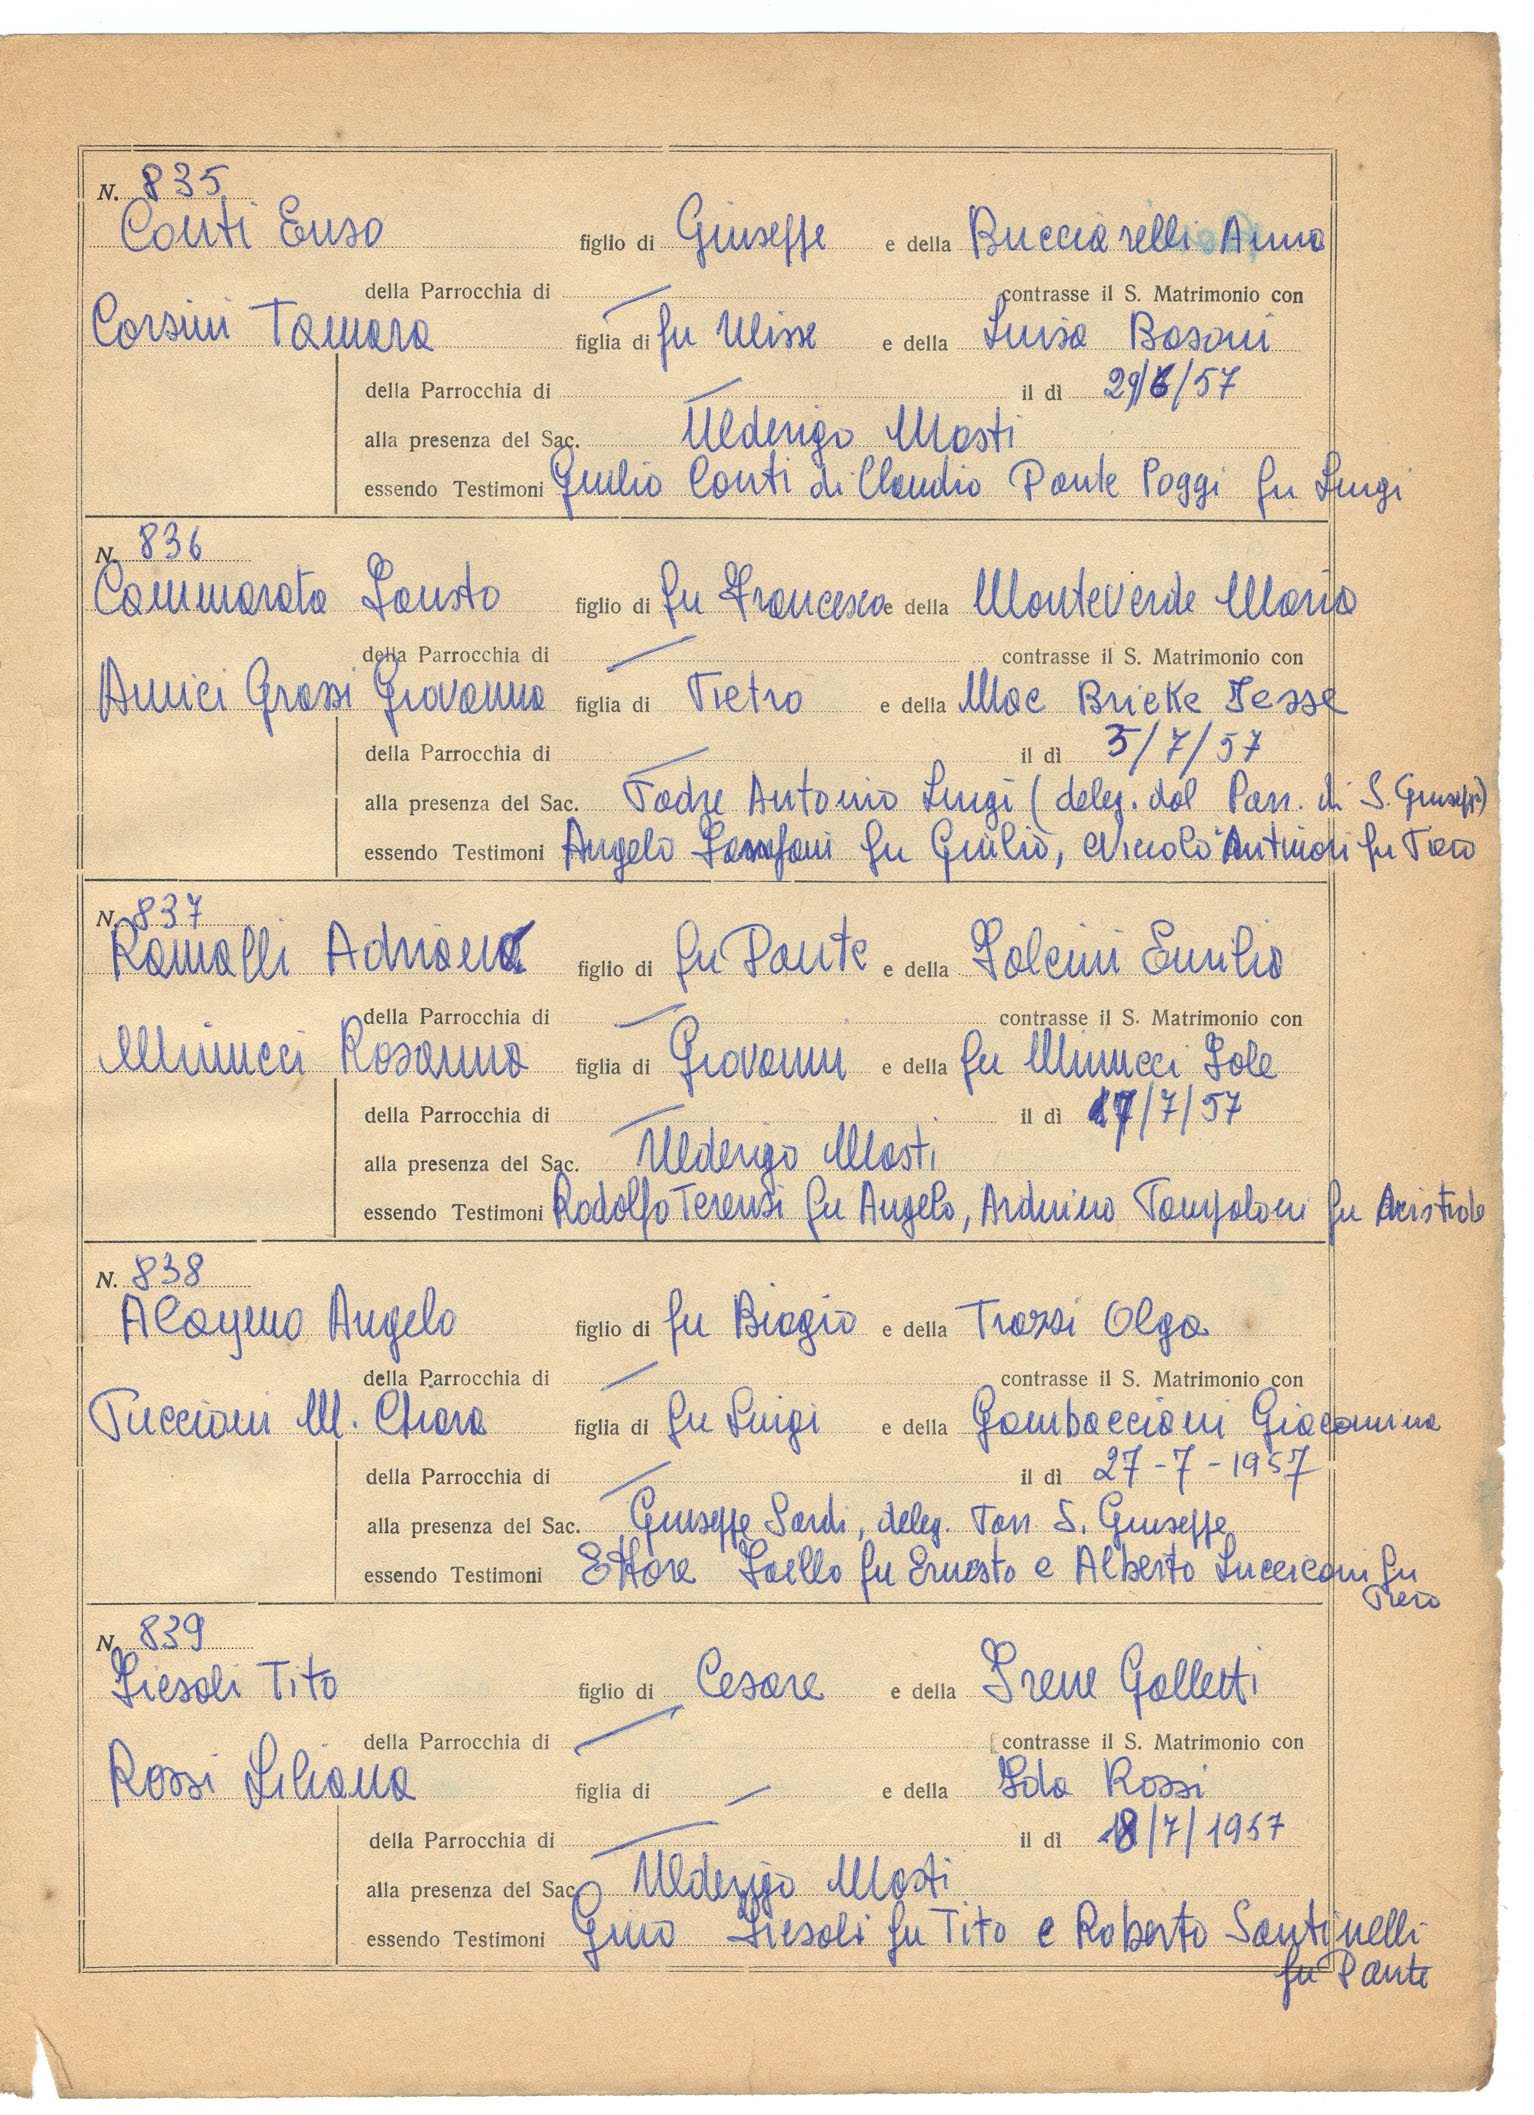 N. 835
Conti Enso figlio di Giuseppe e della Bucciarelli Anna
della Parrocchia di contrasse il S. Matrimonio con
Corsini Tamara figlia di fu Ulisse e della Luisa Basoni
della Parrocchia di il dì 29/6/57
alla presenza del Sac. Ulderigo Masti
essendo Testimoni Giulio Conti di Claudio Dante Poggi fu Luigi
N. 836
Cammarata Fausto figlio di fu Francesco e della Monteverde Maria
della Parrocchia di contrasse il S. Matrimonio con
Amici Grossi Giovanna figlia di Pietro e della Mac Brieke Jesse
della Parrocchia di il dì 5/7/57
alla presenza del Sac. Padre Antonio Luigi (deleg. dal Parr. di S. Giuseppe)
essendo Testimoni Angelo fu Giulio, Niccolò Antinori fu Piero
N. 837
Ramalli Adriano figlio di fu Dante e della Falcini Emilia
della Parrocchia di contrasse il S. Matrimonio con
Minucci Rosanna figlia di Giovanni e della fu Minucci Iole
della Parrocchia di il dì 17/7/57
alla presenza del Sac. Ulderigo Masti
essendo Testimoni Rodolfo Terensi fu Angelo, Arduino Pampaloni fu
N. 838
Alaymo Angelo figlio di fu Biagio e della Trassi Olga
della Parrocchia di contrasse il S. Matrimonio con
Puccioni M. Chiara figlia di fu Luigi e della Gambaccioni Giacomina
della Parrocchia di il dì 27-7-1957
alla presenza del Sac. Giuseppe Sardi, deleg. Parr. S. Giuseppe
essendo Testimoni Ettore fu Ernesto e Alberto fu
Piero
N. 839
Fiesoli Tito figlio di Cesare e della Irene Galletti
della Parrocchia di contrasse il S. Matrimonio con
Rossi Liliana figlia di e della Ida Rossi
della Parrocchia di il dì 18/7/1957
alla presenza del Sac. Ulderigo Masti
essendo Testimoni Gino Fiesoli fu Tito e Roberto Santinelli
fu Dante